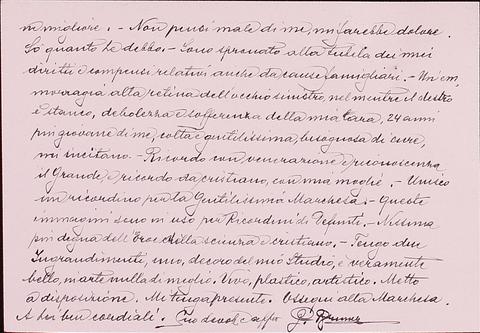 migliore. - Non pensi male di me, mi farebbe dolore.
So quanto le debbo. - Sono spronato alla tutela dei miei
diritti e compensi relativi anche da cause famigliari. - Un'em-
morragia alla retina dell'occhio sinistro, nel mentre il destro
è stanco, debolezza e sofferenza della mia Cara, 24 anni
più giovane di me, colta e gentilissima, bisognosa di cure,
mi incitano. - Ricordo con venerazione e riconoscenza
il Grande, e ricordo da cristiano, con mia moglie. - Unisco
un ricordino per la Gentilissima Marchesa. - Queste
immagini sono in uso per Ricordini di Defunti. - Nessuna
più degna dell'Eroe della scienza e cristiano. - Tengo due
Ingrandimenti, uno, decoro del mio Studio, è veramente
bello, in arte nulla di meglio. Vivo, plastico, artistico. Metto
a disposizione. Mi tenga presente. Ossequi alla Marchesa.
A Lei ben cordiale. Suo devoto e affo